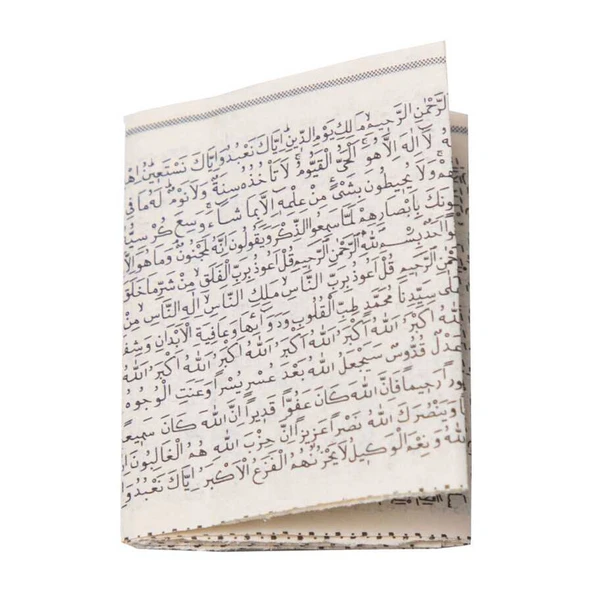 الرَّحْمٰنِ الرَّحِيْمِ مٰلِكِ يَوْمِ الدِّيْنِ اِيَّاكَ نَعْبُدُ وَاِيَّاكَ نَسْتَعِيْنُ
لَا اِلٰهَ اِلَّا هُوَ الْحَىُّ الْقَيُّوْمُ لَا تَأْخُذُهُ سِنَةٌ وَلَا نَوْمٌ لَهُ مَا فِى
وَلَا يُحِيْطُوْنَ بِشَىْءٍ مِنْ عِلْمِهِ اِلَّا بِمَا شَاءَ وَسِعَ كُرْسِيُّ
بِاَبْصَارِهِمْ لَمَّا سَمِعُوا الذِّكْرَ وَيَقُوْلُوْنَ اِنَّهُ لَمَجْنُوْنٌ وَمَا هُوَ اِلَّا
اللهِ الرَّحْمٰنِ الرَّحِيْمِ قُلْ اَعُوْذُ بِرَبِّ الْفَلَقِ مِنْ شَرِّ مَا خَلَقَ
الرَّحِيْمِ قُلْ اَعُوْذُ بِرَبِّ النَّاسِ مَلِكِ النَّاسِ اِلٰهِ النَّاسِ مِنْ
سَيِّدِنَا مُحَمَّدٍ طِبِّ الْقُلُوْبِ وَدَوَائِهَا وَعَافِيَةِ الْاَبْدَانِ وَشِفَا
اللهُ اَكْبَرُ اَللهُ اَكْبَرُ اَللهُ اَكْبَرُ اَللهُ اَكْبَرُ اَللهُ
عَدْلٌ قُدُّوْسٌ سَيَجْعَلُ اللهُ بَعْدَ عُسْرٍ يُسْرًا وَعَنَتِ الْوُجُوْهُ
رَحِيْمًا فَاِنَّ اللهَ كَانَ عَفُوًّا قَدِيْرًا اِنَّ اللهَ كَانَ سَمِيْعًا
وَيَنْصُرَكَ اللهُ نَصْرًا عَزِيْزًا اِنَّ حِزْبَ اللهِ هُمُ الْغَالِبُوْنَ
اللهُ وَنِعْمَ الْوَكِيْلُ لَا يَحْزُنُهُمُ الْفَزَعُ الْاَكْبَرُ اِيَّاكَ نَعْبُدُ وَ